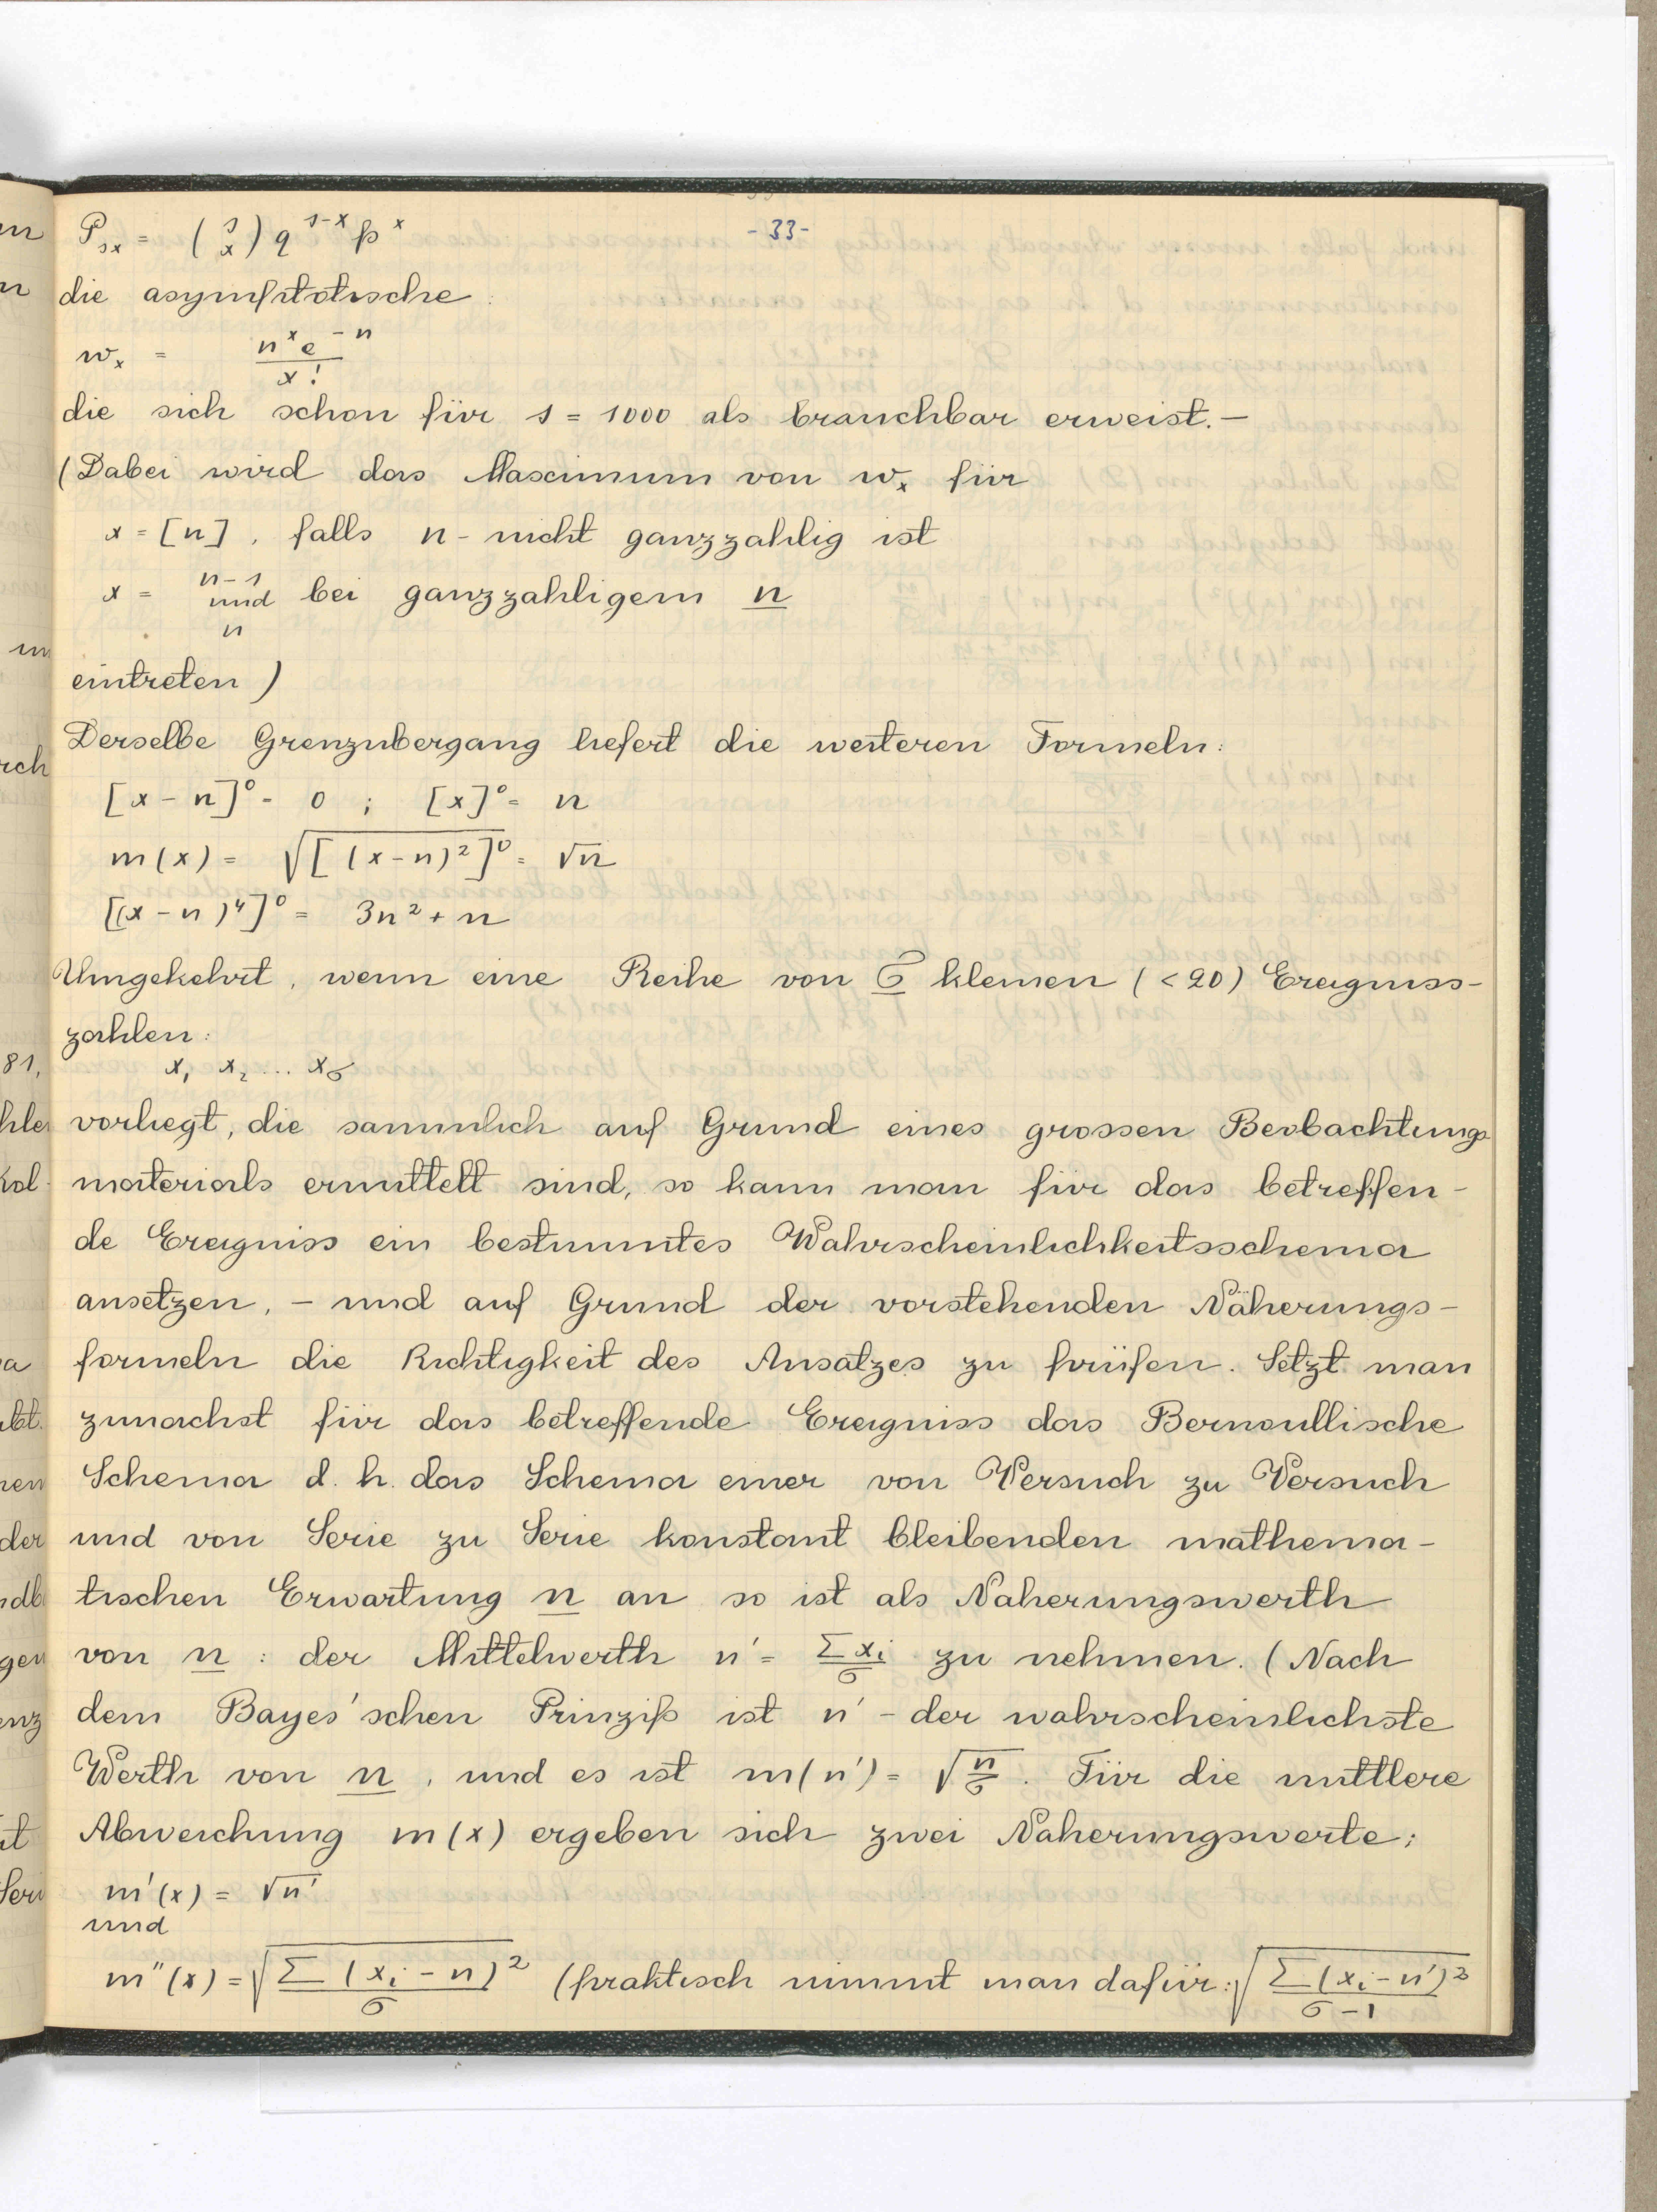 - 33-
P_sx = (s x) q^(s-x) p^x
die asymptotische :
w_x = n^x e^(-n) / x!
die sich schon für s = 1000 als brauchbar erweist. —
(Dabei wird das Maximum von w_x für
x = [n] , falls n - nicht ganzzahlig ist
x = n-1 und n bei ganzzahligem n
eintreten )
Derselbe Grenzubergang liefert die weiteren Formeln:
[x - n]^0 = 0 ; [x]^0 = n
m(x) = √([(x-n)^2]^0) = √n
[(x - n)^4]^0 = 3n^2 + n
Umgekehrt, wenn eine Reihe von σ kleinen (<20) Ereigniss-
zahlen:
x_1 x_2 ... x_σ
vorliegt, die sammlich auf Grund eines grossen Beobachtungs
materials ermittelt sind, so kann man für das betreffen-
de Ereigniss ein bestimmtes Wahrscheinlichkeitsschema
ansetzen, - und auf Grund der vorstehenden Näherungs-
formeln die Richtigkeit des Ansatzes zu prüfen. Setzt man
zunachst für das betreffende Ereigniss das Bernoullische
Schema d. h. das Schema einer von Versuch zu Versuch
und von Serie zu Serie konstant bleibenden mathema-
tischen Erwartung n an so ist als Naherungswerth
von n : der Mittelwerth n' = Σx_i / σ zu nehmen. (Nach
dem Bayes'schen Prinzip ist n' - der wahrscheinlichste
Werth von n , und es ist m(n') = √(n/σ). Für die mittlere
Abweichung m(x) ergeben sich zwei Naherungswerte;
m'(x) = √n'
und
m''(x) = √(Σ(x_i - n)^2 / σ) (praktisch nimmt man dafür: √(Σ(x_i - n')^2 / (σ-1))